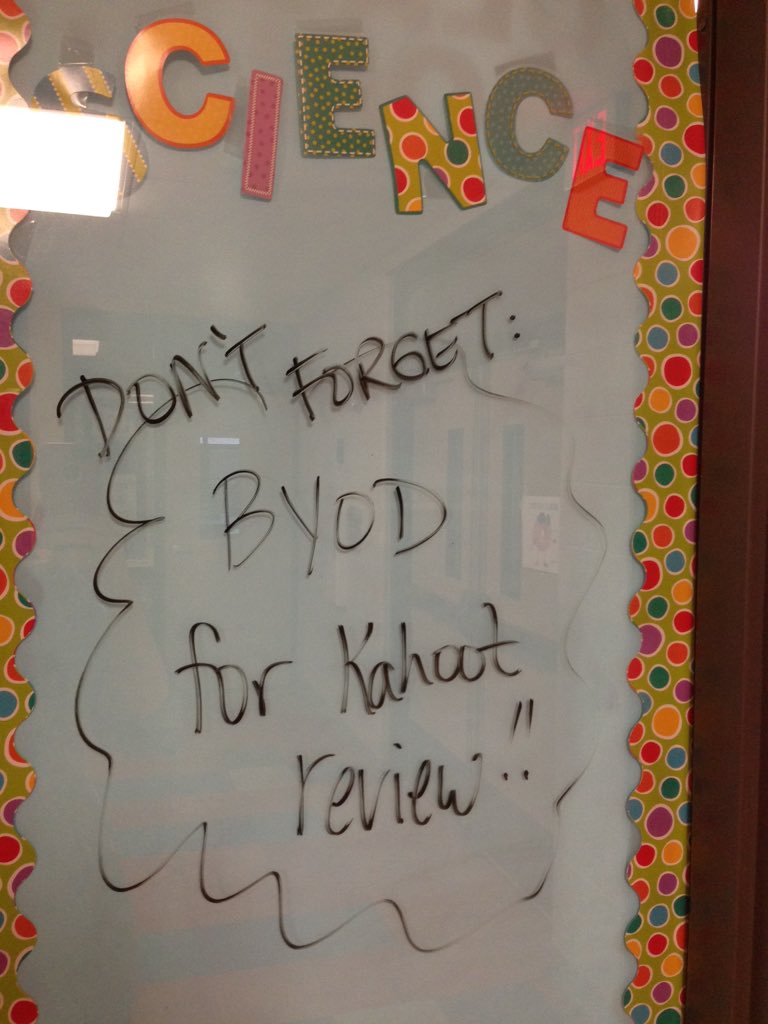 SCIENCE
DON'T FORGET:
BYOD
for Kahoot
review!!